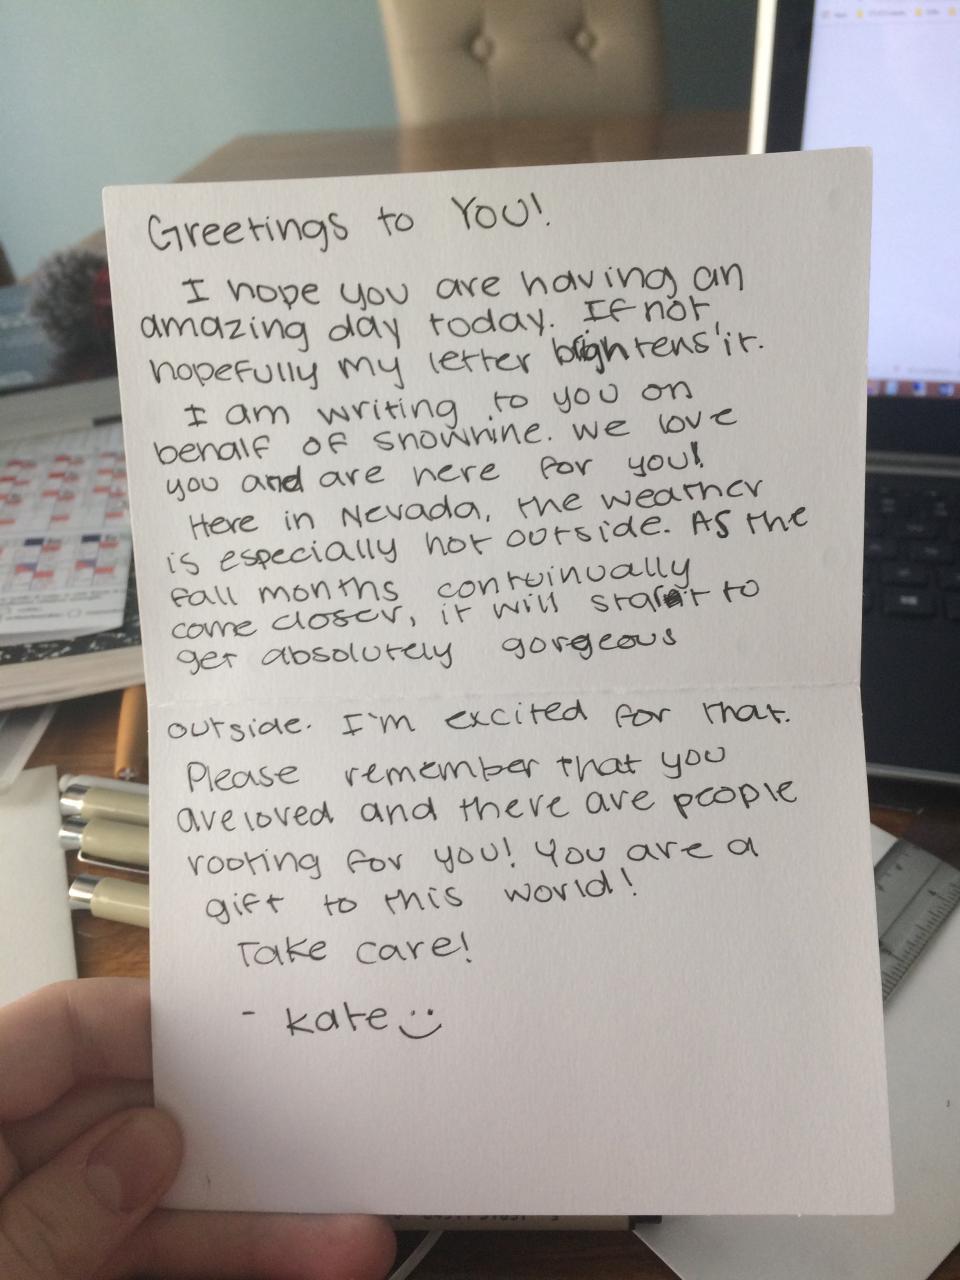 Greetings to You!
I hope you are having an
amazing day today. If not,
hopefully my letter brightens it.
I am writing to you on
behalf of snowhine. we love
you and are here for you!
Here in Nevada, the weather
is especially hot outside. As the
fall months continually
come closer, it will start to
get absolutely gorgeous
outside. I'm excited for that.
Please remember that you
are loved and there are people
rooting for you! You are a
gift to this world!
Take care!
- Kate